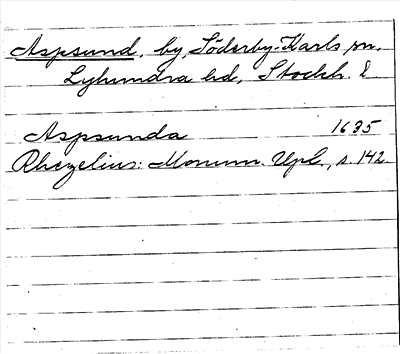 Aspsund, by, Söderby-Karls sn.
Lyhundra hd, Stockh. l
Aspsunda 1635
Rhezelius: Monum. Upl., s. 142